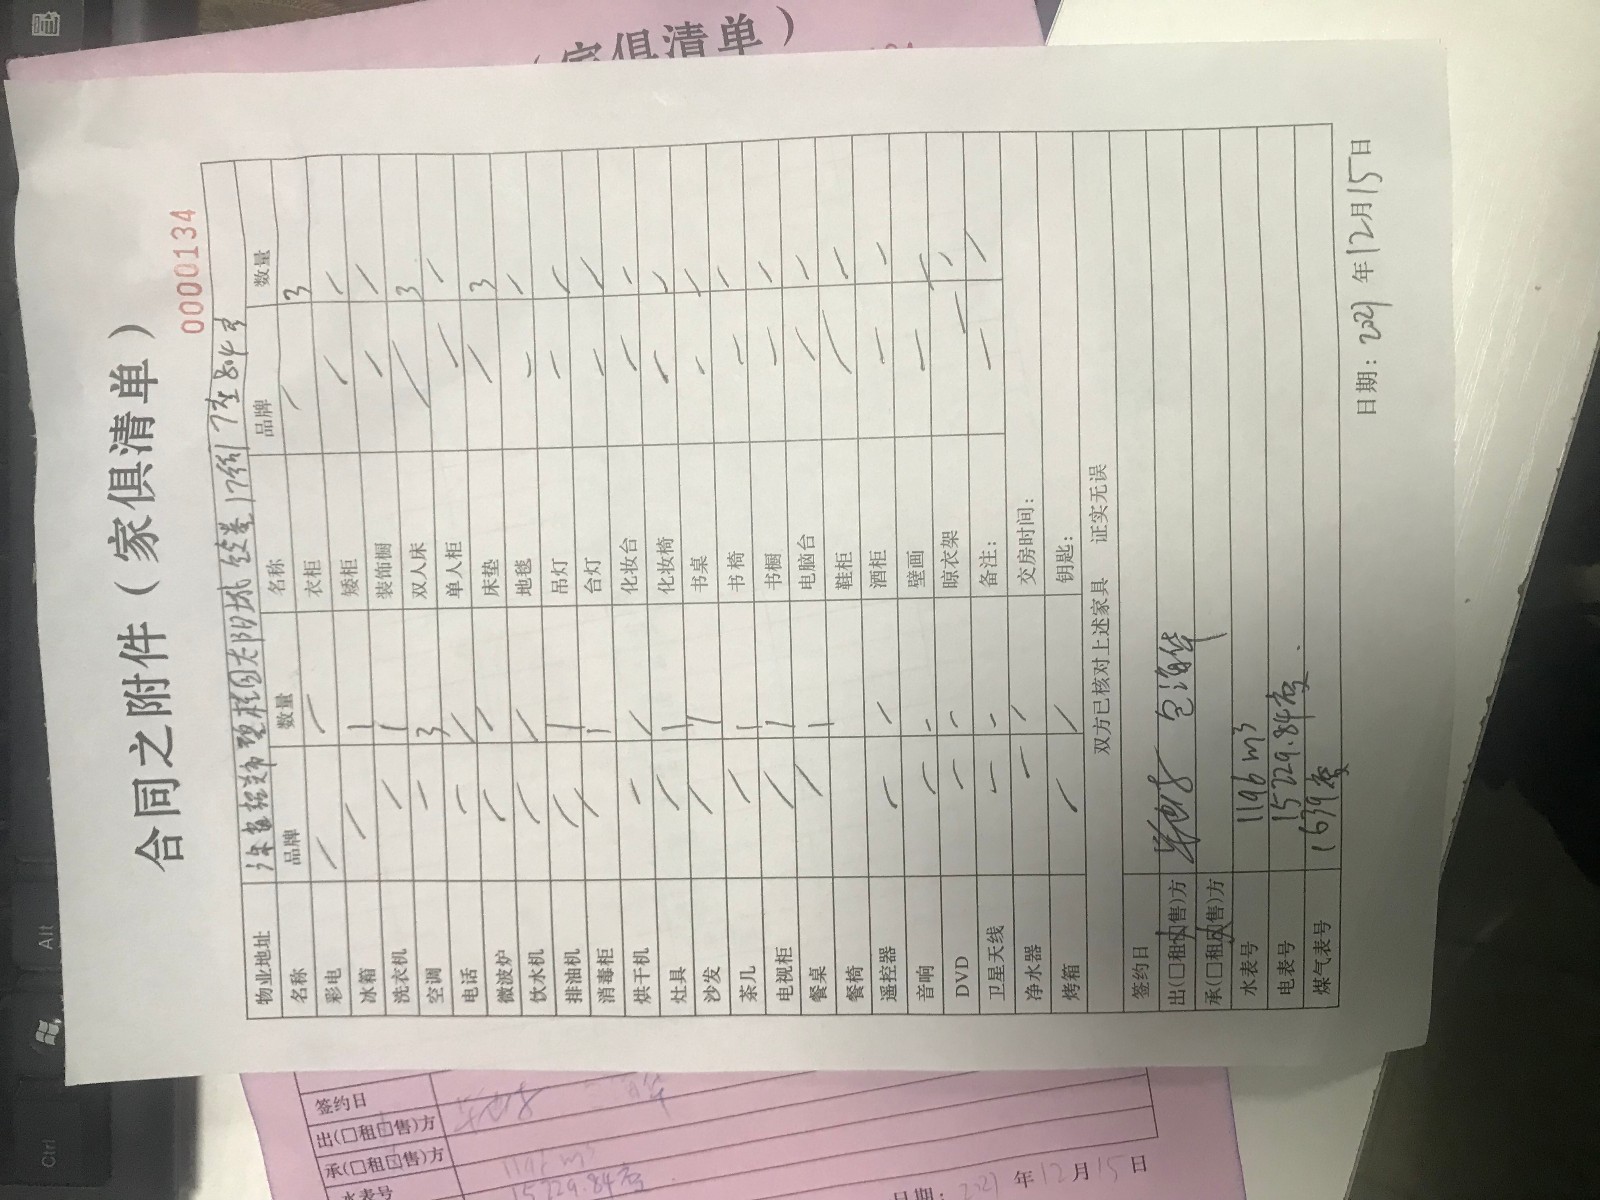 （家俱清单）
合同之附件（家俱清单）
0000134
物业地址 17幢 804号
名称 品牌 数量 名称 品牌 数量
彩电 / / 衣柜 / 3
冰箱 / 1 矮柜 / /
洗衣机 / 1 装饰橱 / /
空调 / 3 双人床 / 3
电话 / / 单人柜 / /
微波炉 / / 床垫 / 3
饮水机 / / 地毯 / /
排油机 / 1 吊灯 / /
消毒柜 / 1 台灯 / /
烘干机 / / 化妆台 / /
灶具 / 1 化妆椅 / /
沙发 / 1 书桌 / /
茶几 / 1 书椅 / /
电视柜 / 1 书橱 / /
餐桌 / 1 电脑台 / /
餐椅 鞋柜 / /
遥控器 / / 酒柜 / /
音响 / / 壁画 / /
DVD / / 晾衣架 / /
卫星天线 / / 备注： / /
净水器 / / 交房时间：
烤箱 / / 钥匙：
双方已核对上述家具 证实无误
签约日
出(□租□售)方
承(□租□售)方 包海华
水表号 1196 m3
电表号 15229.84度
煤气表号 1639度
日期：2021 年 12 月 15 日
签约日
出(□租□售)方
承(□租□售)方
水表号 1196 m3
15229.84度
日期：2021 年 12 月 15 日
Alt
Ctrl